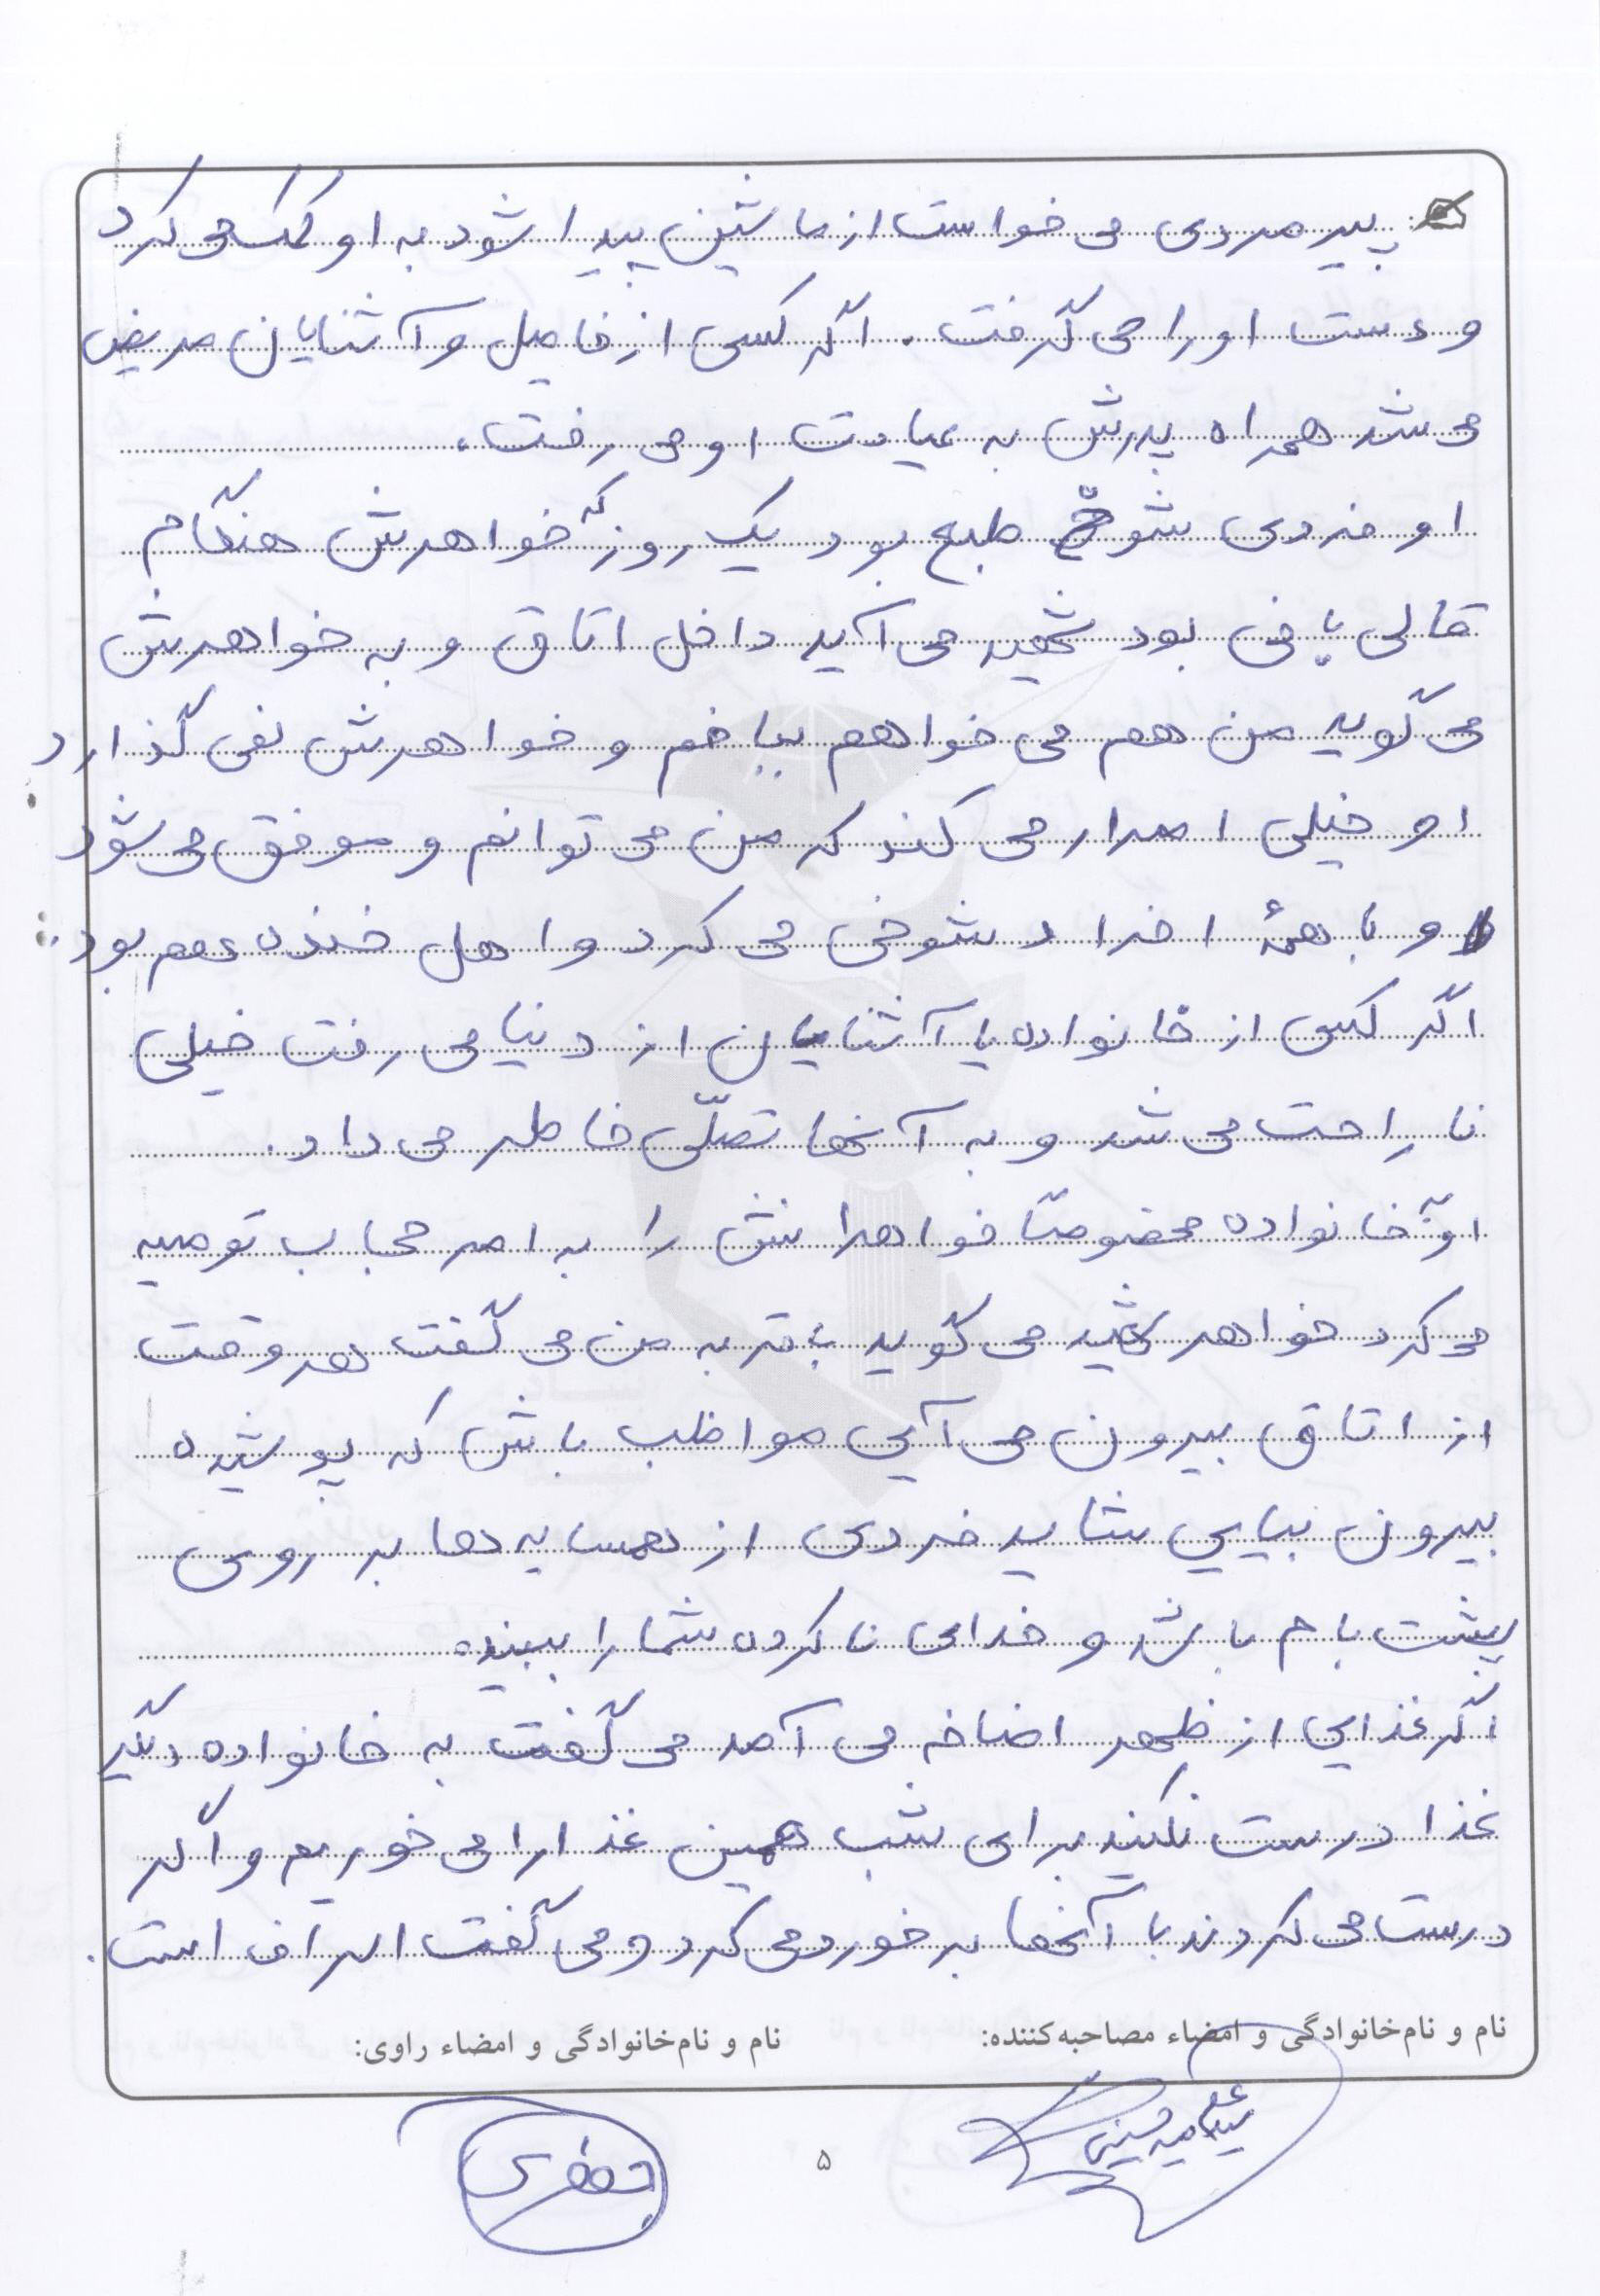 پیرمردی می خواست از ماشین پیدا شود به او کمک می کرد
و دست او را می گرفت. اگر کسی از فامیل و آشنایان مریض
می شد همراه پدرش به عیادت او می رفت.
او فردی شوخ طبع بود یک روز که خواهرش هنگام
قالی بافی بود شهید می آید داخل اتاق و به خواهرش
می گوید من هم می خواهم ببافم و خواهرش نمی گذارد
او خیلی اصرار می کند که من می توانم و موفق می شود
و با همهٔ افراد شوخی می کرد و اهل خنده هم بود.
اگر کسی از خانواده یا آشنایان از دنیا می رفت خیلی
ناراحت می شد و به آنها تصلّی خاطر می داد.
او خانواده مخصوصاً خواهرانش را به امر حجاب توصیه
می کرد خواهر شهید می گوید باقر به من می گفت هر وقت
از اتاق بیرون می آیی مواظب باش که پوشیده
بیرون بیایی شاید فردی از همسایه ها بر روی
پشت بام باشد و خدایی ناکرده شما را ببیند.
اگر غذایی از ظهر اضافه می آمد می گفت به خانواده دیگر
غذا درست نکنید برای شب همین غذا را می خوریم و اگر
درست می کردند با آنها برخورد می کرد و می گفت اسراف است.
نام و نام‌خانوادگی و امضاء مصاحبه‌کننده:
نام و نام‌خانوادگی و امضاء راوی:
جعفری
۵